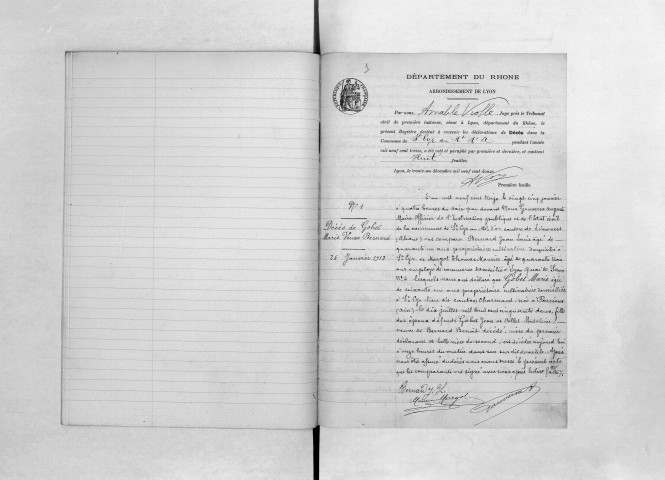 DÉPARTEMENT DU RHONE
ARRONDISSEMENT DE LYON
Par nous, Amable Violle, Juge près le Tribunal
civil de première instance, séant à Lyon, département du Rhône, le
présent Registre destiné à recevoir les déclarations de Décès dans la
Commune de St Cyr au Mt d'Or pendant l'année
mil neuf cent treize, a été coté et paraphé par première et dernière, et contient
Huit feuilles.
Lyon, le trente-un décembre mil neuf cent douze.
Première feuille
N° 1
Décès de Gobet
Marie Veuve Bernard
25 Janvier 1913
L'an mil neuf cent treize, le vingt cinq janvier
à quatre heures du soir par devant Nous
Maire Officier de l'Instruction publique et de l'état civil
de la commune de St Cyr au Mt d'Or canton de Limonest
(Rhône) ont comparu Bernard Jean Louis âgé de
quarante un ans propriétaire cultivateur domicilié à
St Cyr et Margot Thomas Marius âgé de quarante trois
ans employé de commerce domicilié à Lyon quai de
lesquels nous ont déclaré que Gobet Marie âgée
de soixante ans propriétaire cultivatrice domiciliée
à St Cyr née à
(Ain) le dix juillet mil huit cent cinquante deux, fille
des époux défunts Gobet Jean et
veuve de Bernard Benoît décédé, mère du premier
déclarant et belle mère du second, est décédée aujourd'hui
à onze heures du matin dans son domicile. Après
nous être assuré du décès nous avons dressé le présent acte
que les comparants ont signé avec nous après lecture faite.
Bernard J. L.
Margot